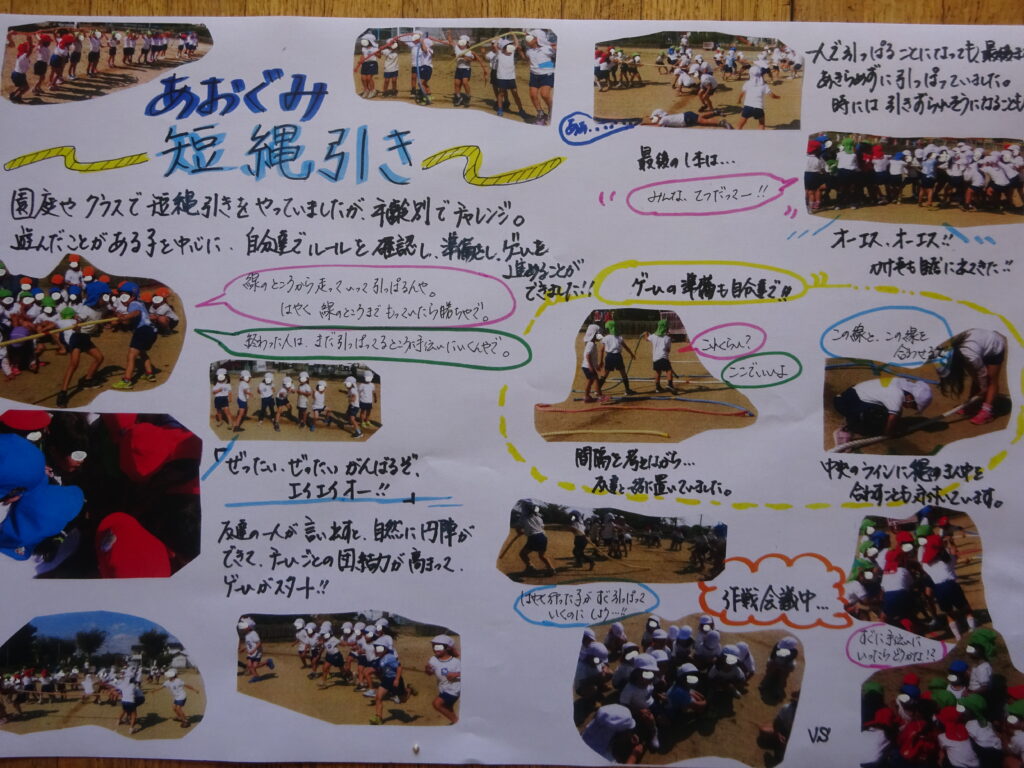 あおぐみ
短縄引き
園庭や クラスで 短縄引きを やっていましたが、年齢別で チャレンジ。
遊んだことが ある子を 中心に、自分達で ルールを 確認し、準備をし、ゲームを
進めることが
できました!!
線のところから走っていって引っぱるんや。
はやく 線のところまで もっていたら勝ちやで。
終わった人は、まだ引っぱってるところ手伝いにいくんやで。
「ぜったい、ぜったい がんばるぞ、
エイエイオー!!」
友達の一人が 言い出すと、自然に円陣が
できて、チームごとの団結力が 高まって、
ゲームがスタート!!
あぁ……
一人で引っぱることになっても
あきらめずに引っぱっていました。
時には 引きずられそうになることも
最後の1本は…
みんな、てつだってー!!
オーエス、オーエス!!
かけ声も自然に出てきた!!
ゲームの準備も自分達で!!
これくらい?
ここでいいよ
間隔を考えながら…
友達と一緒に置いていました。
この線と、この線を
合わせて
中央のラインに縄の真ん中を
合わすことも気付いています。
はやく行った子が すぐ引っぱって
いくのに しよう…!!
作戦会議中…
すぐに手伝いに
いったらどうかな!?
VS